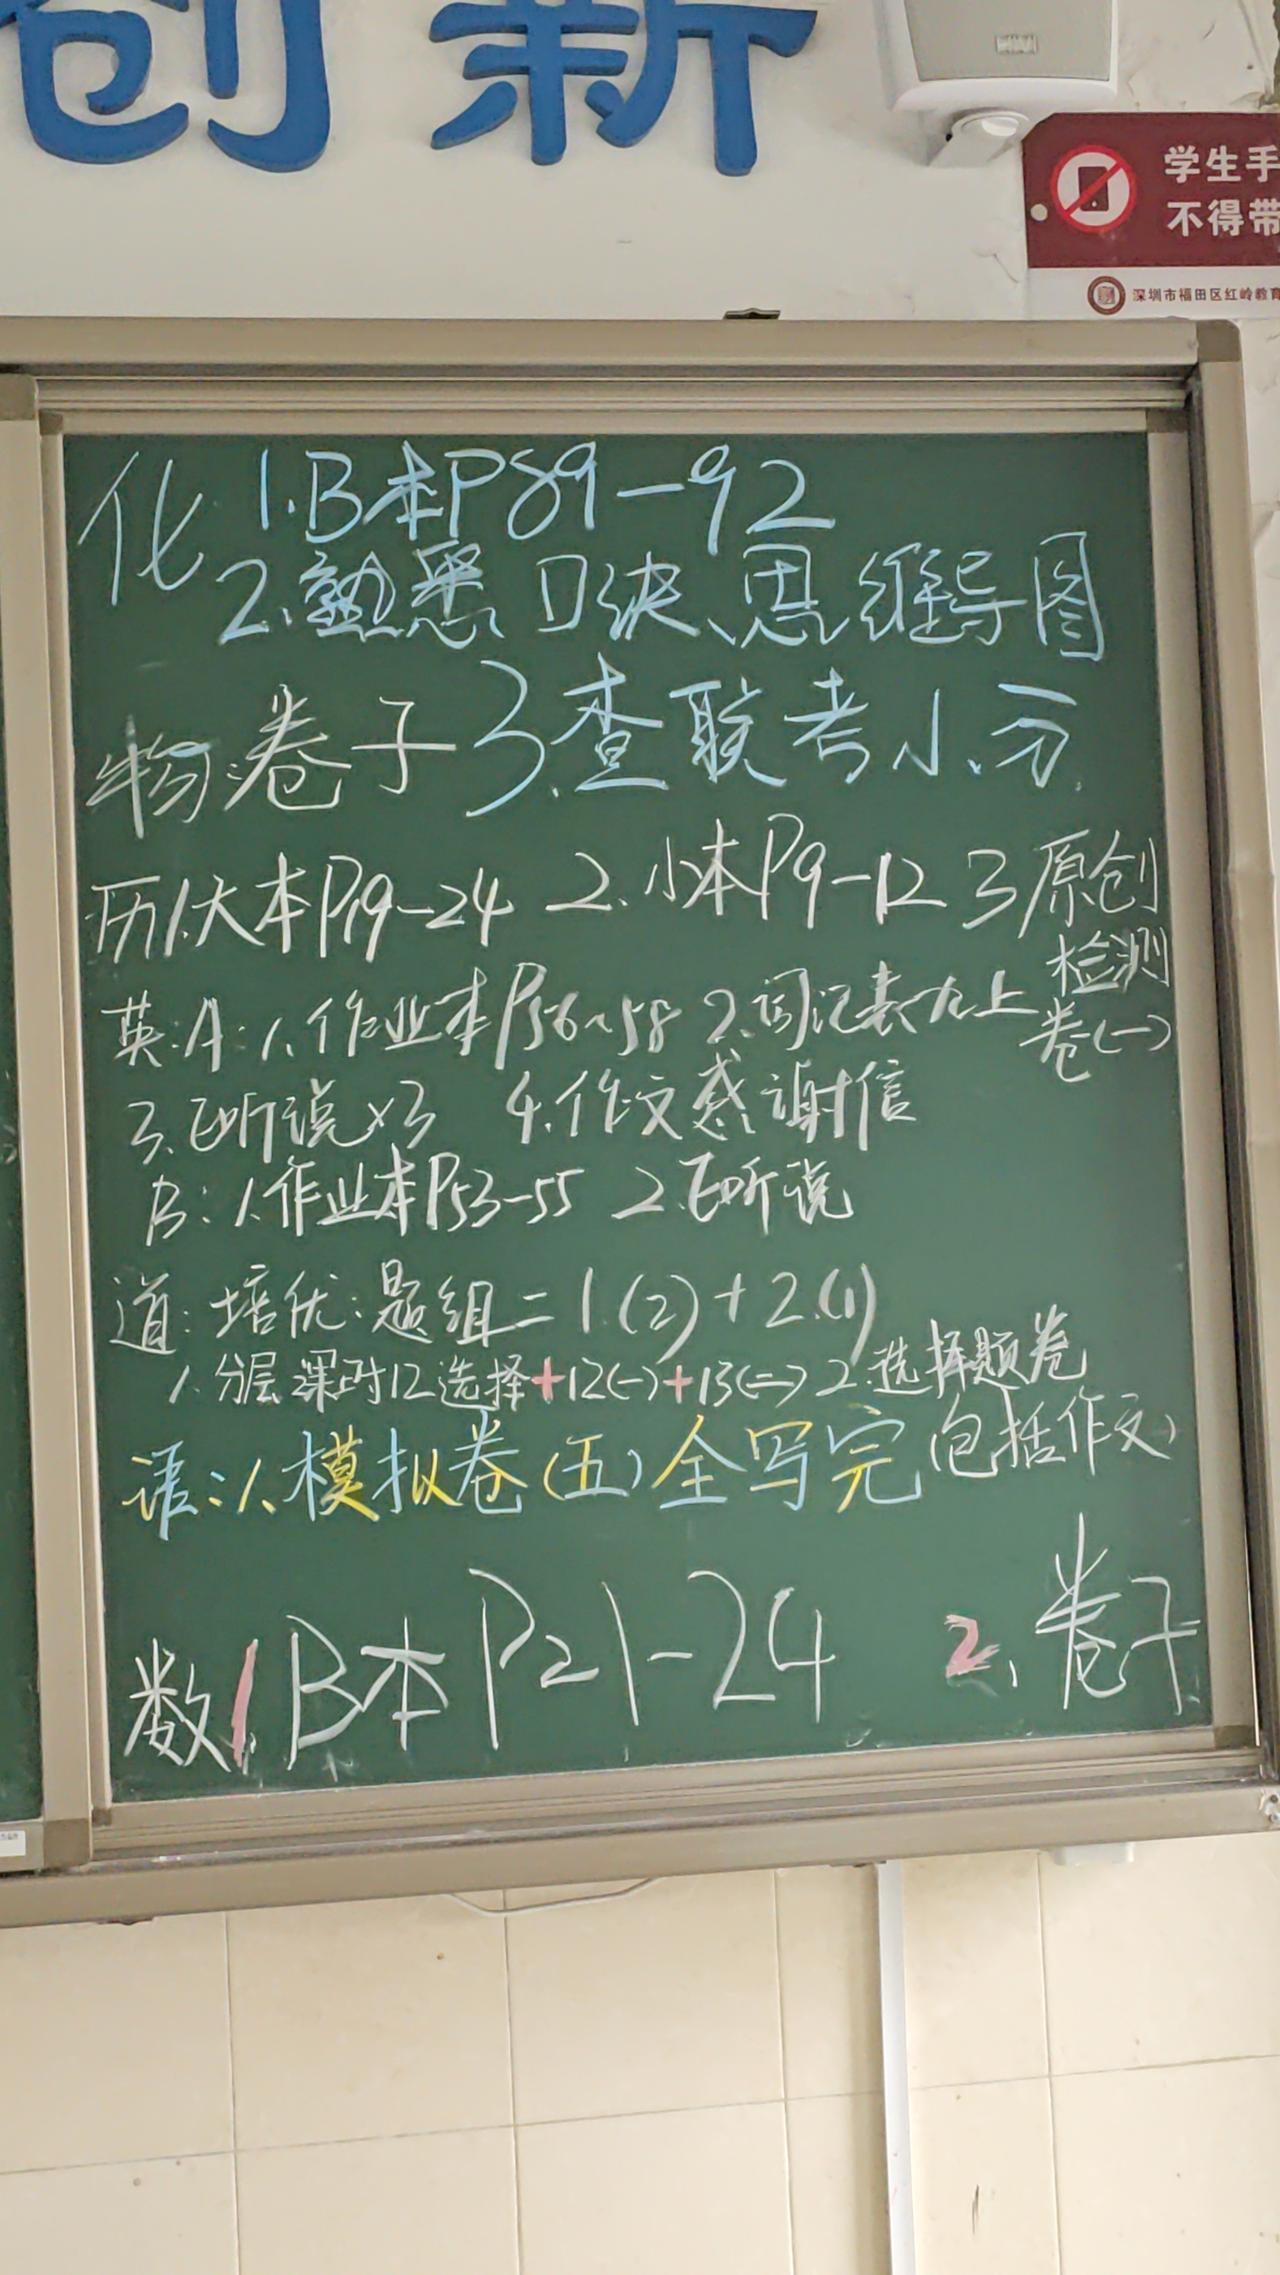 创新
学生手
不得带
深圳市福田区红岭教育
化 1.B本P89-92
2.熟悉口诀、思维导图
物:卷子 3.查联考小分.
历1.大本P19-24 2.小本P9-12 3原创
检测
卷(一)
英:A:1.作业本P56~58 2.词汇表九上
3.E听说×3 4.作文感谢信
B:1.作业本P53-55 2.E听说
道:培优:题组二1.(2)+2.(1)
1.分层课时12选择+12(一)+13(二) 2.选择题卷
语:1.模拟卷(五)全写完(包括作文)
数1.B本P21-24 2.卷子